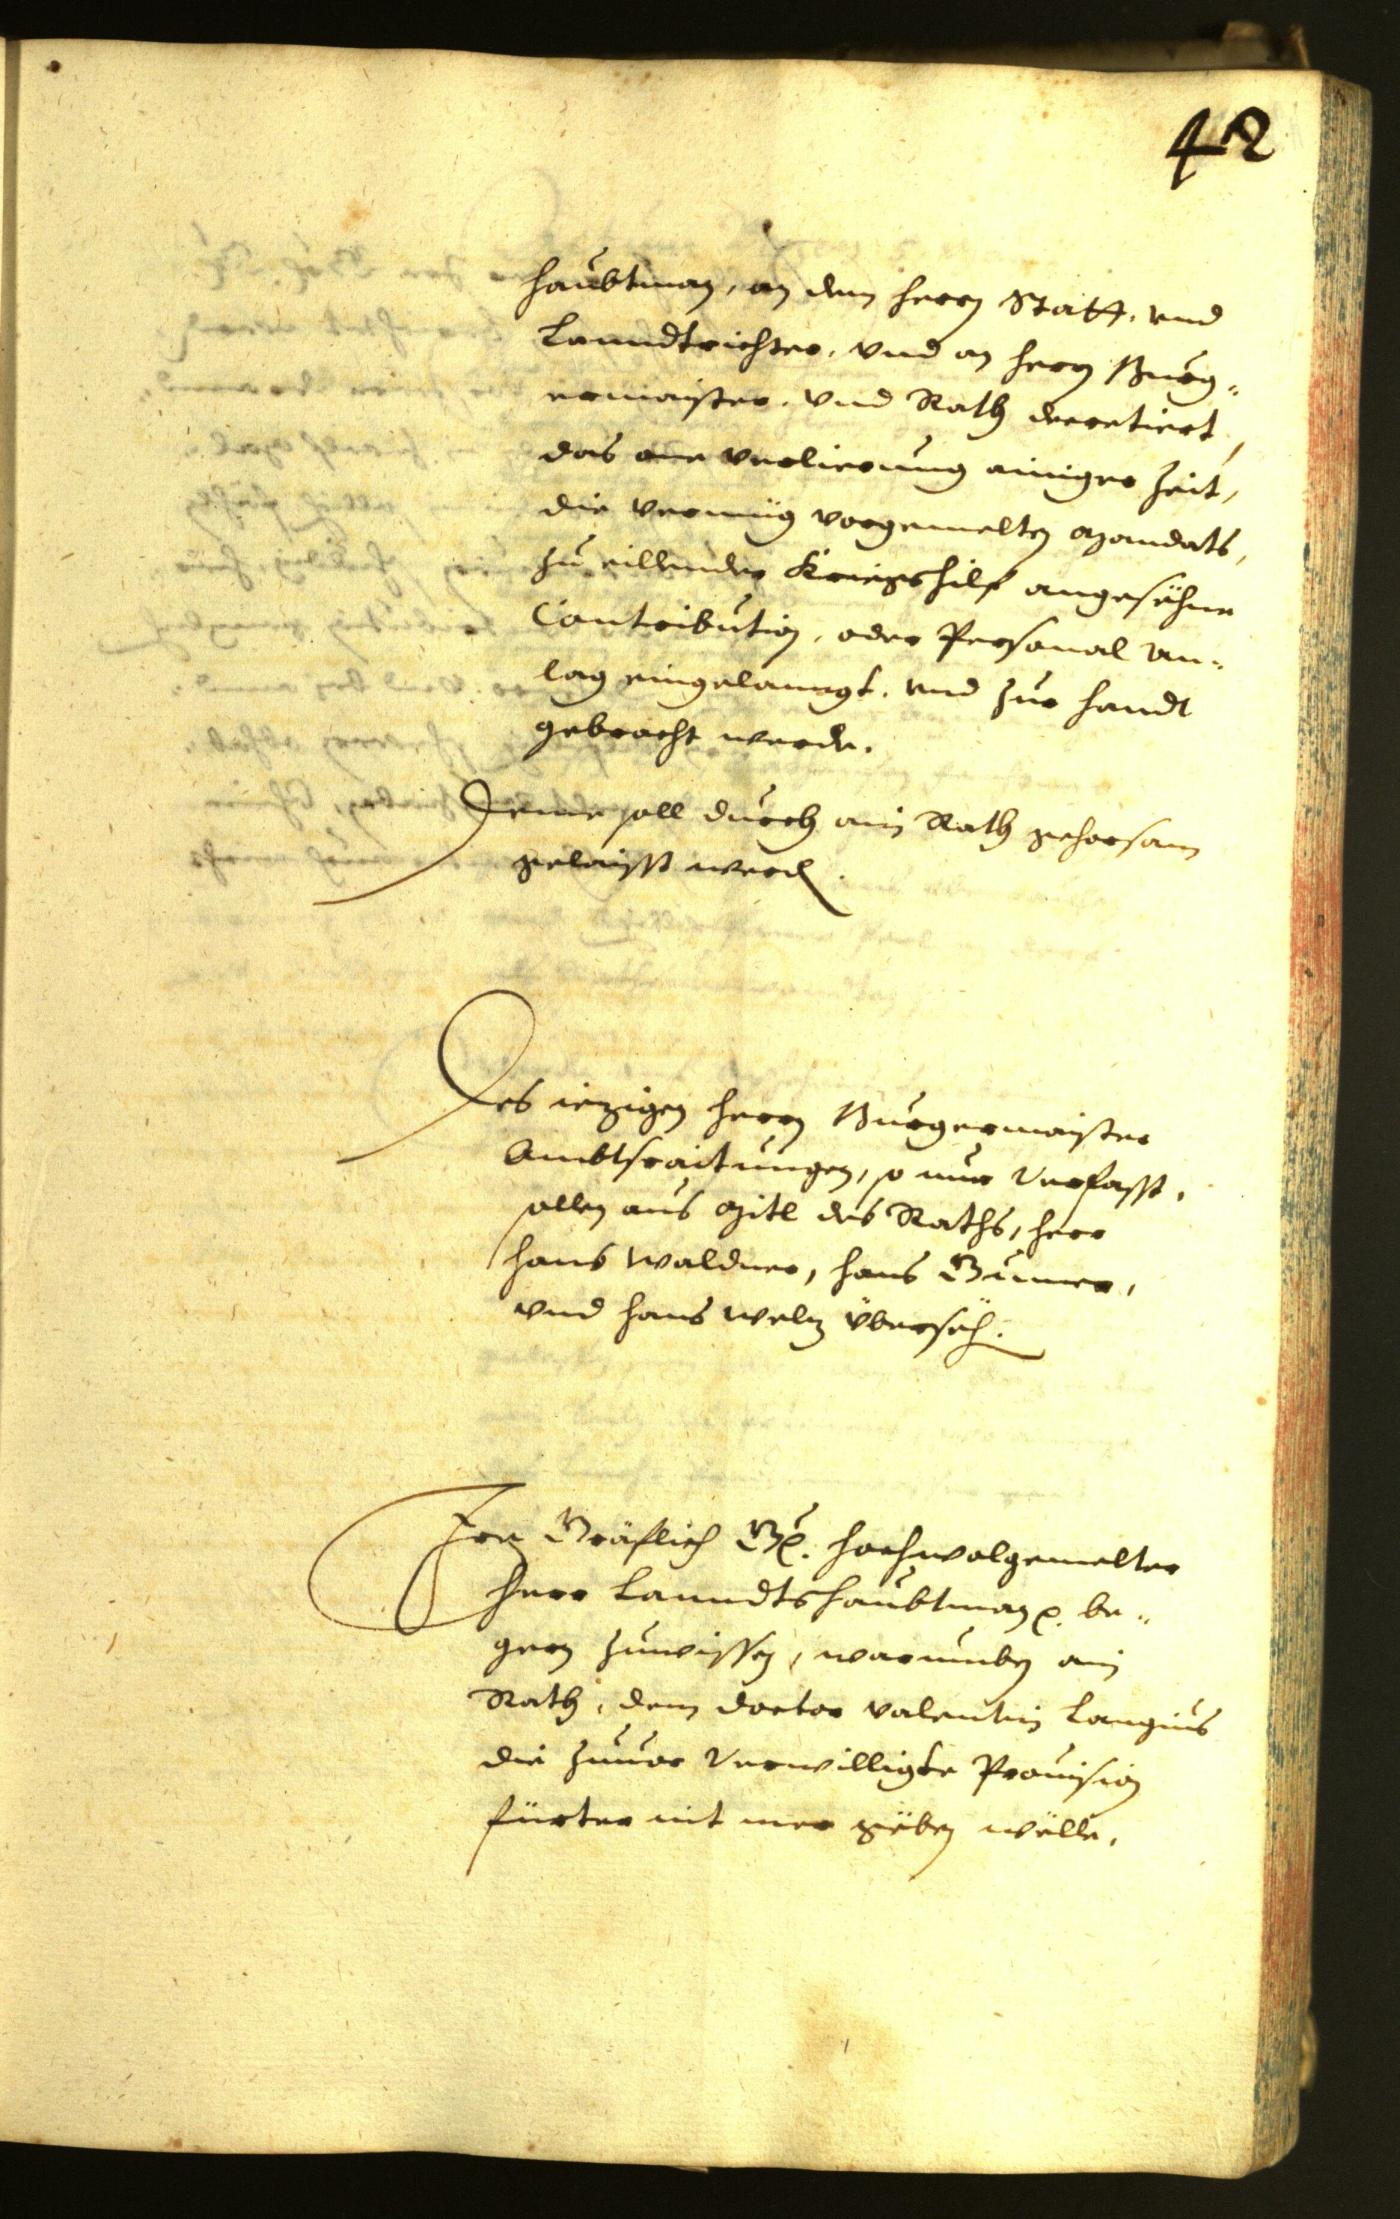 42
haubtman, an den herrn Statt. vnd
Lanndtrichter, vnd an herrn Burg„
ermaister. vnd Rath decretiert,
das one verlierung ainiger Zeit,
die vermüg vorgemelten Mandats,
zu eillender Kriegshilf angesehne
Contribution, oder Personal An„
lag eingelanngt. vnd zur handt
gebracht werde.
Deme soll durch ain Rath gehorsam
gelaisst werden.
Des iezigen herrn Burgermaister
Ambtsraitungen, so nun Verfasst,
sollen aus Mitl des Raths, herr
hans Waldner, hans
vnd hans Welz übersech.
Ire Gräflich G. hochwolgemelter
Herr Lanndtshaubtman be„
gern zuwissen, warumben ain
Rath, dem doctor Valentin Langius
die zuuor Verwilligte Prouision
fürter nit mer geben wölle.